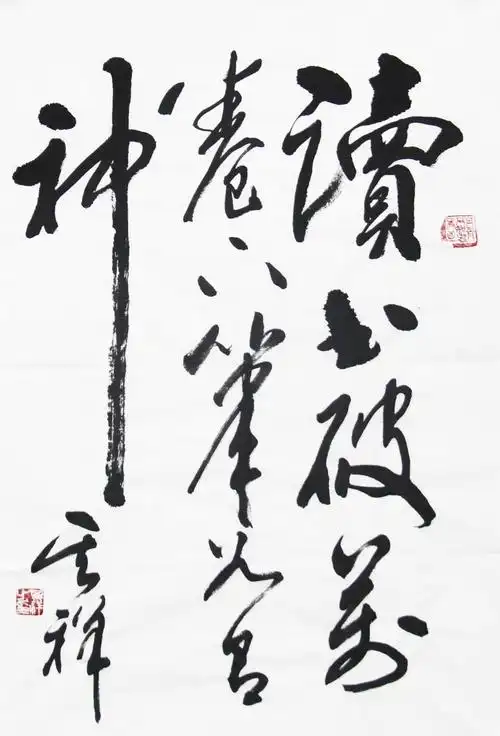 讀书破萬
卷下笔如有
神
云祥